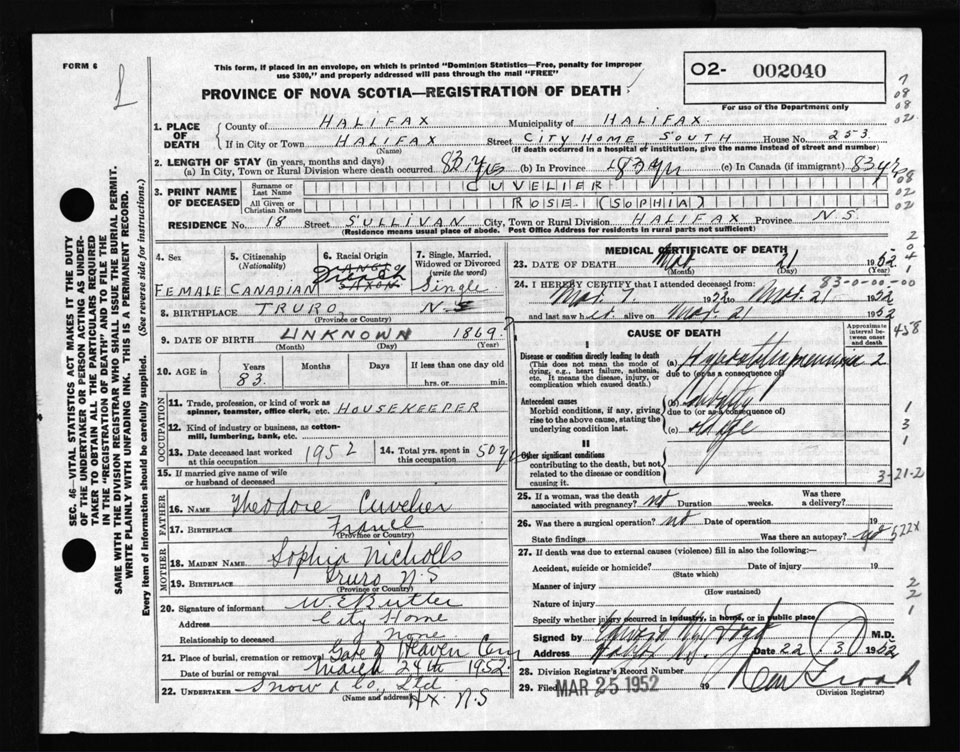 FORM 6
This form, if placed in an envelope, on which is printed "Dominion Statistics—Free, penalty for improper
use $300," and properly addressed will pass through the mail "FREE"
PROVINCE OF NOVA SCOTIA—REGISTRATION OF DEATH
02- 002040
For use of the Department only
SEC. 46—VITAL STATISTICS ACT MAKES IT THE DUTY
OF THE UNDERTAKER OR PERSON ACTING AS UNDER-
TAKER TO OBTAIN ALL THE PARTICULARS REQUIRED
IN THE "REGISTRATION OF DEATH" AND TO FILE THE
SAME WITH THE DIVISION REGISTRAR WHO SHALL ISSUE THE BURIAL PERMIT.
WRITE PLAINLY WITH UNFADING INK. THIS IS A PERMANENT RECORD.
Every item of information should be carefully supplied. (See reverse side for instructions.)
1. PLACE OF DEATH
County of HALIFAX Municipality of HALIFAX
If in City or Town HALIFAX Street CITY HOME, SOUTH House No. 253
(Name) (If death occurred in a hospital of institution, give the name instead of street and number)
2. LENGTH OF STAY (in years, months and days)
(a) In City, Town or Rural Division where death occurred 83 yrs (b) In Province 83 yrs (c) In Canada (if immigrant) 83 yrs
3. PRINT NAME OF DECEASED
Surname or Last Name CUVELIER
All Given or Christian Names ROSE (SOPHIA)
RESIDENCE No. 18 Street SULLIVAN City, Town or Rural Division HALIFAX Province N S
(Residence means usual place of abode. Post Office Address for residents in rural parts not sufficient)
4. Sex FEMALE
5. Citizenship (Nationality) CANADIAN
6. Racial Origin ANGLO SAXON
7. Single, Married, Widowed or Divorced (write the word) Single
8. BIRTHPLACE TRURO, N S
(Province or Country)
9. DATE OF BIRTH UNKNOWN 1869
(Month) (Day) (Year)
10. AGE in Years 83. Months Days If less than one day old
hrs. or min.
OCCUPATION
11. Trade, profession, or kind of work as
spinner, teamster, office clerk, etc. HOUSEKEEPER
12. Kind of industry or business, as cotton-
mill, lumbering, bank, etc.
13. Date deceased last worked at this occupation 1952
14. Total yrs. spent in this occupation 50 yrs
15. If married give name of wife
or husband of deceased
FATHER
16. Name Theodore Cuvelier
17. Birthplace France
(Province or Country)
MOTHER
18. Maiden Name Sophia Nicholls
19. Birthplace Truro N.S
(Province or Country)
20. Signature of informant W E Butler
Address City Home
Relationship to deceased None
21. Place of burial, cremation or removal Gate of Heaven Cem
Date of burial or removal March 24th 1952
22. Undertaker Snow & Co, Ltd
(Name and address) Hx. N.S
MEDICAL CERTIFICATE OF DEATH
23. DATE OF DEATH Mar 21 1952
(Month) (Day) (Year)
24. I HEREBY CERTIFY that I attended deceased from: 83-0-00-00
Mar. 7. 1952 to Mar. 21 1952
and last saw her alive on Mar 21 1952
CAUSE OF DEATH
Approximate interval between onset and death
I
Disease or condition directly leading to death
(This does not mean the mode of
dying, e.g., heart failure, asthenia,
etc. It means the disease, injury, or
complication which caused death.)
(a) Hypostatic pneumonia 2
due to (or as a consequence of)
Antecedent causes
Morbid conditions, if any, giving
rise to the above cause, stating the
underlying condition last.
(b)
due to (or as a consequence of)
(c) old age
II
Other significant conditions
contributing to the death, but not
related to the disease or condition
causing it.
3-21-2
25. If a woman, was the death
associated with pregnancy? no Duration weeks. Was there a delivery?
26. Was there a surgical operation? no Date of operation 19
State findings Was there an autopsy? no
522X
27. If death was due to external causes (violence) fill in also the following:—
Accident, suicide or homicide? Date of injury 19
(State which)
Manner of injury
(How sustained)
Nature of injury
Specify whether injury occurred in industry, in home, or in public place
Signed by M.D.
Address Halifax N.S. Date 22. 3. 1952
28. Division Registrar's Record Number
29. Filed MAR 25 1952 19
(Division Registrar)